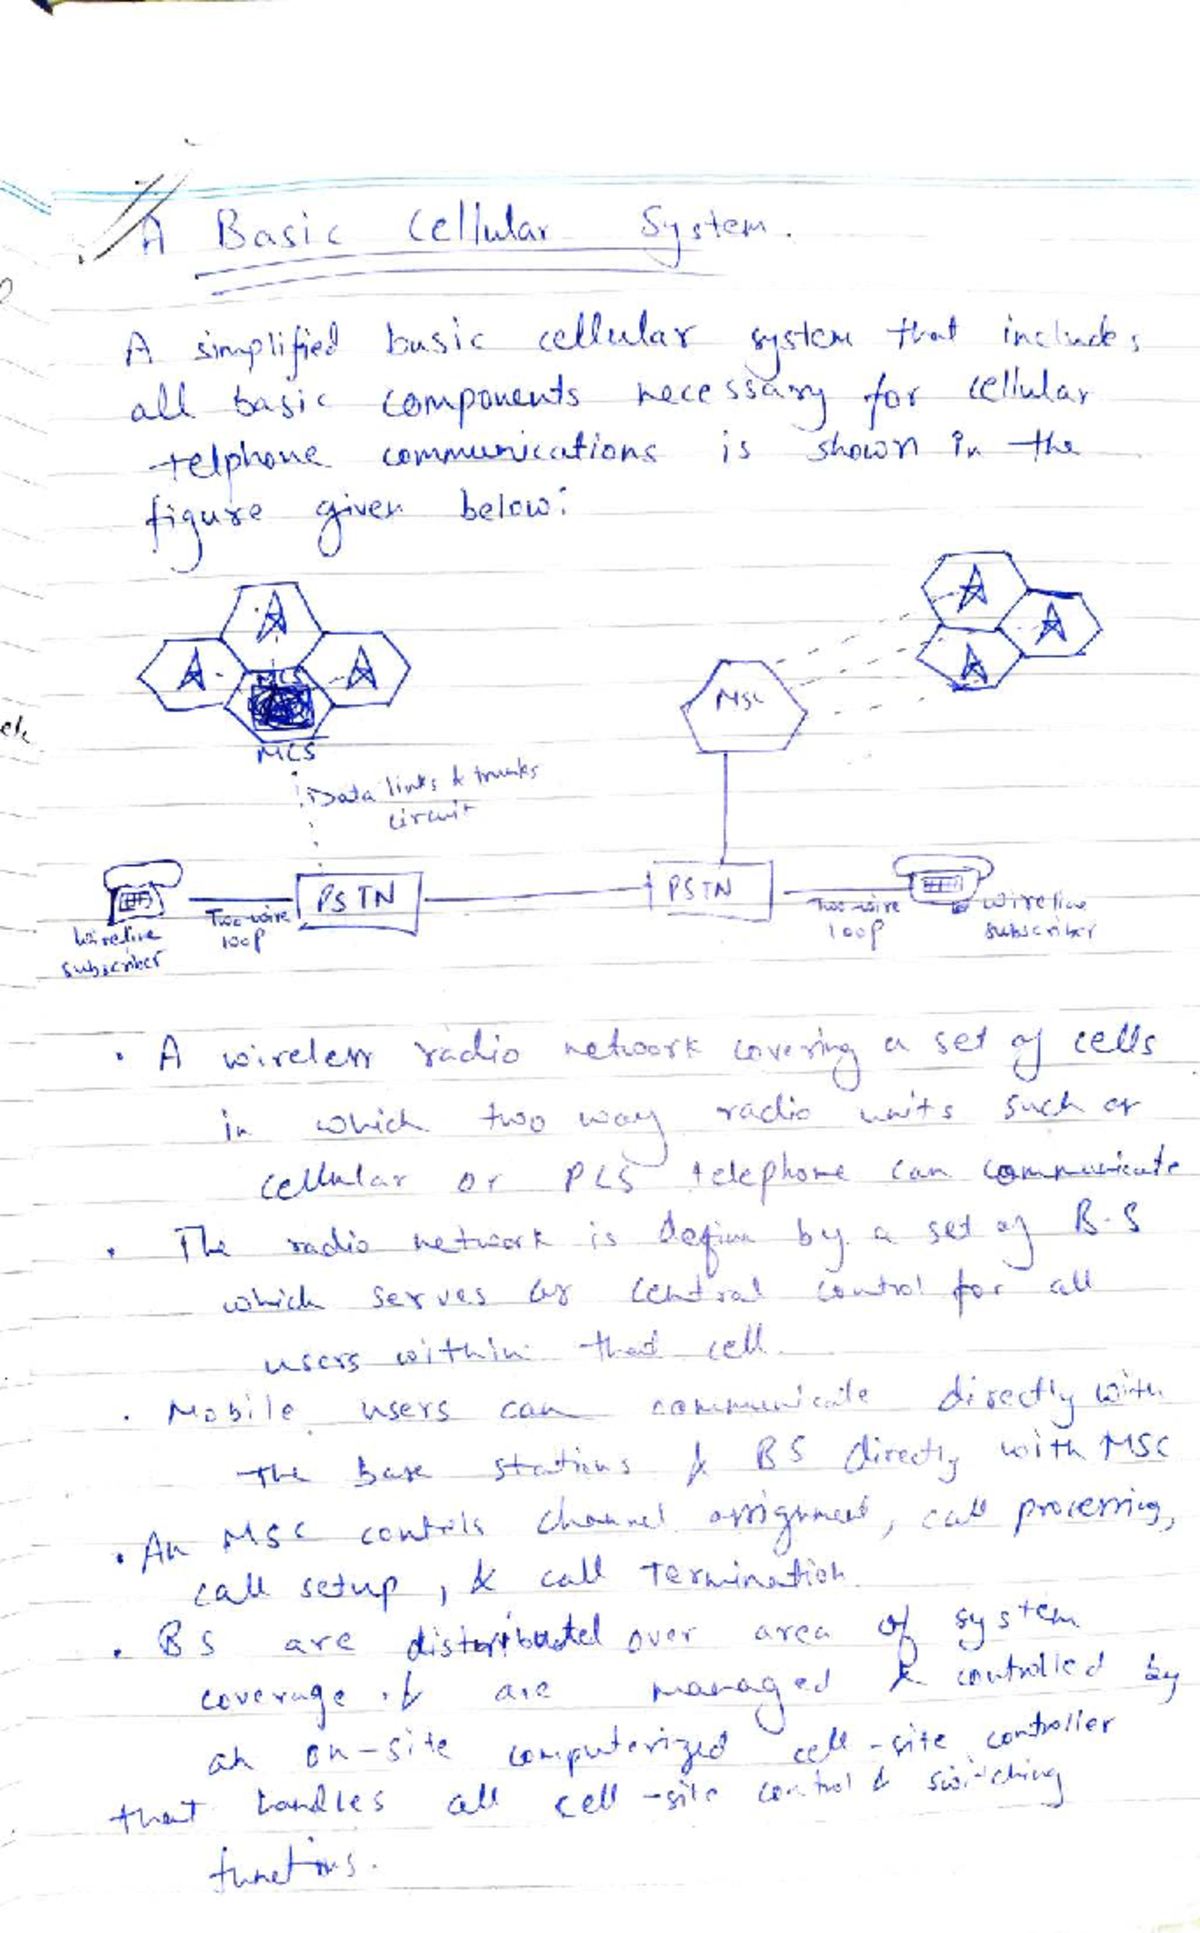 A Basic Cellular System.
A simplified basic cellular system that includes
all basic components necessary for cellular
telphone communications is shown in the
figure given below:
MCS
MCS
MSC
Data links & trunks
circuit
PSTN
PSTN
Two-wire
loop
Two-wire
loop
Wireline
subscriber
wireline
subscriber
• A wireless radio network covering a set of cells
in which two way radio units such as
cellular or PCS telephone can communicate
• The radio network is define by a set of B.S
which serves as central control for all
users within that cell.
• Mobile users can communicate directly with
The base stations & BS directly with MSC
• An MSC controls channel assignment, call processing,
call setup, & call Termination.
• BS are distributed over area of system
coverage & are managed & controlled by
an on-site computerized cell-site controller
that handles all cell-site control & switching
functions.